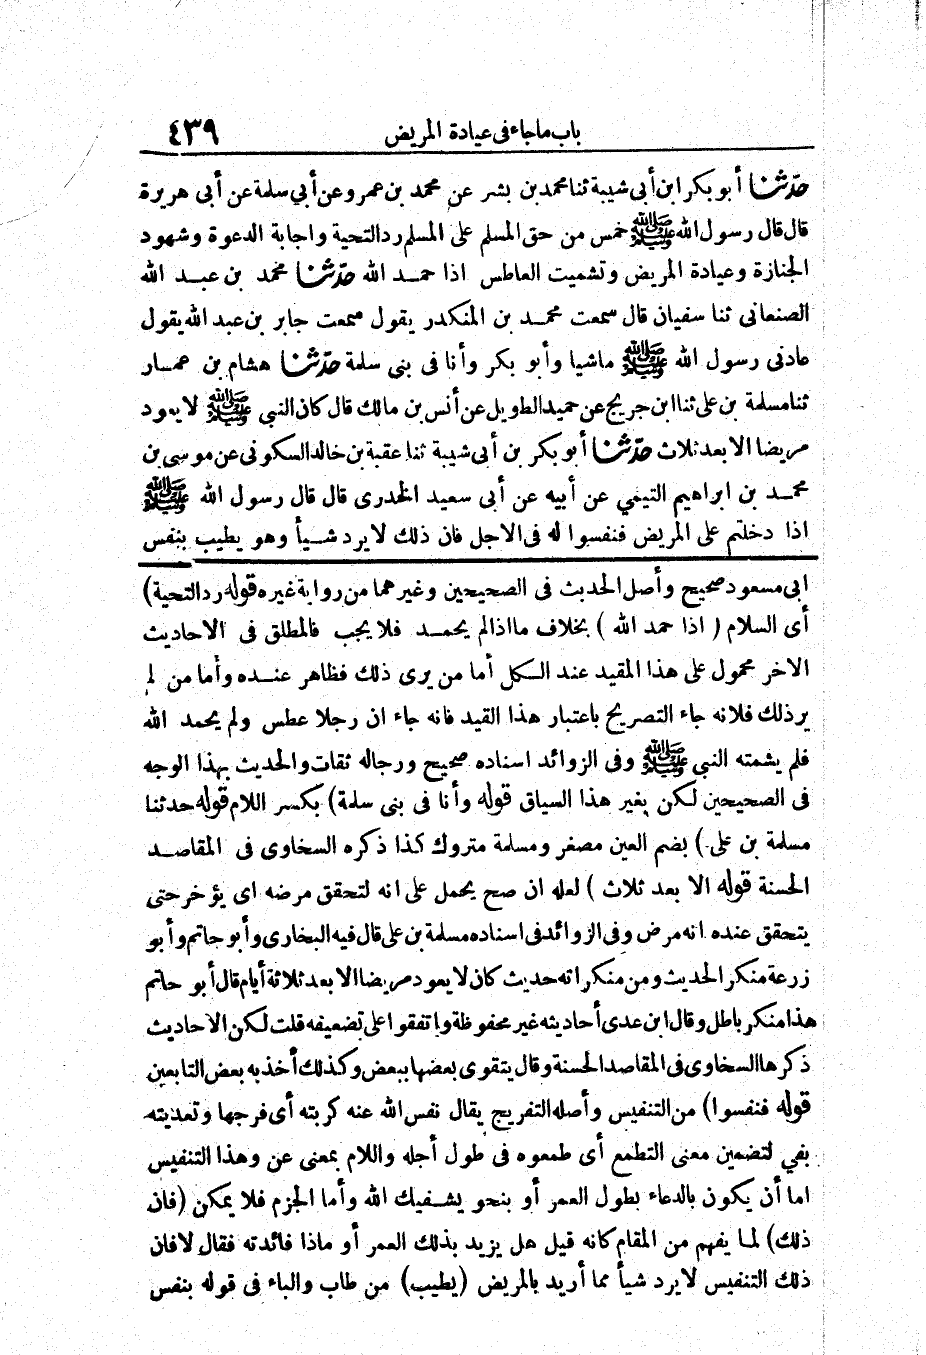 باب ماجاء فى عيادة المريض ٤٣٩
حدّثنا أبو بكر ابن أبى شيبة ثنا محمد بن بشر عن محمد بن عمرو عن أبي سلمة عن أبى هريرة
قال قال رسول الله ﷺ خمس من حق المسلم على المسلم رد التحية واجابة الدعوة وشهود
الجنازة وعيادة المريض وتشميت العاطس اذا حمد الله حدّثنا محمد بن عبد الله
الصنعانى ثنا سفيان قال سمعت محمد بن المنكدر يقول سمعت جابر بن عبد الله يقول
عادنى رسول الله ﷺ ماشيا وأبو بكر وأنا فى بنى سلمة حدّثنا هشام بن عمار
ثنا مسلمة بن على ثنا ابن جريج عن حميد الطويل عن أنس بن مالك قال كان النبي ﷺ لا يعود
مريضا الا بعد ثلاث حدّثنا أبو بكر بن أبى شيبة ثنا عقبة بن خالد السكونى عن موسى بن
محمد بن ابراهيم التيمي عن أبيه عن أبى سعيد الخدرى قال قال رسول الله ﷺ
اذا دخلتم على المريض فنفسوا له فى الاجل فان ذلك لا يرد شيأ وهو يطيب بنفس
ابى مسعود صحيح وأصل الحديث فى الصحيحين وغيرهما من رواية غيره قوله رد التحية)
أى السلام ( اذا حمد الله ) بخلاف ما اذا لم يحمد فلا يجب فالمطلق فى الاحاديث
الاخر محمول على هذا المقيد عند الكل أما من يرى ذلك فظاهر عنده وأما من لم
ير ذلك فلانه جاء التصريح باعتبار هذا القيد فانه جاء ان رجلا عطس ولم يحمد الله
فلم يشمته النبي ﷺ وفى الزوائد اسناده صحيح ورجاله ثقات والحديث بهذا الوجه
فى الصحيحين لكن بغير هذا السياق قوله وأنا فى بنى سلمة) بكسر اللام قوله حدثنا
مسلمة بن على ) بضم العين مصغر ومسلمة متروك كذا ذكره السخاوى فى المقاصد
الحسنة قوله الا بعد ثلاث ) لعله ان صح يحمل على انه لتحقق مرضه اى يؤخر حتى
يتحقق عنده انه مرض وفى الزوائد فى اسناده مسلمة بن على قال فيه البخارى وأبو حاتم وأبو
زرعة منكر الحديث ومن منكراته حديث كان لا يعود مريضا الا بعد ثلاثة أيام قال أبو حاتم
هذا منكر باطل وقال ابن عدى أحاديثه غير محفوظة واتفقوا على تضعيفه قلت لكن الاحاديث
ذكرها السخاوى فى المقاصد الحسنة وقال يتقوى بعضها ببعض وكذلك أخذ به بعض التابعين
قوله فنفسوا) من التنفيس وأصله التفريج يقال نفس الله عنه كربته أى فرجها وتعديته
بفي لتضمين معنى التطمع أى طمعوه فى طول أجله واللام بمعنى عن وهذا التنفيس
اما أن يكون بالدعاء بطول العمر أو بنحو يشفيك الله وأما الجزم فلا يمكن (فان
ذلك) لما يفهم من المقام كانه قيل هل يزيد بذلك العمر أو ماذا فائدته فقال لا فان
ذلك التنفيس لا يرد شيأ مما أريد بالمريض (يطيب) من طاب والباء فى قوله بنفس